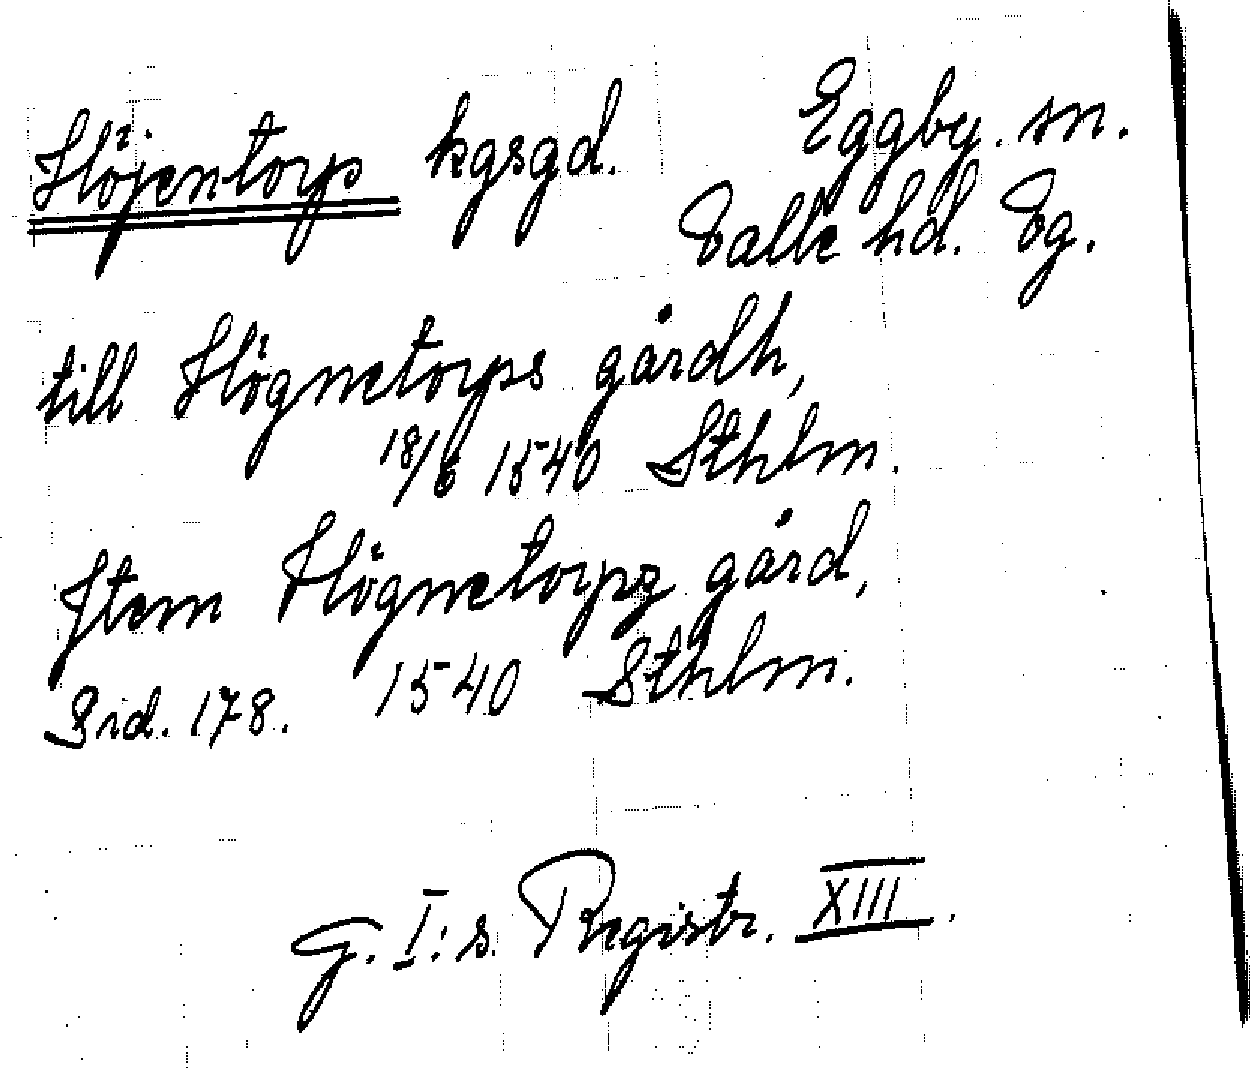 Höjentorps kgsgd. Eggby. sn.
Valle hd. Vg.
till Högnetorps gårdh,
18/6 1540 Sthlm.
Item Högnetorpz gård,
Srd. 178. 1540 Sthlm.
G. I:s. Registr. XIII.